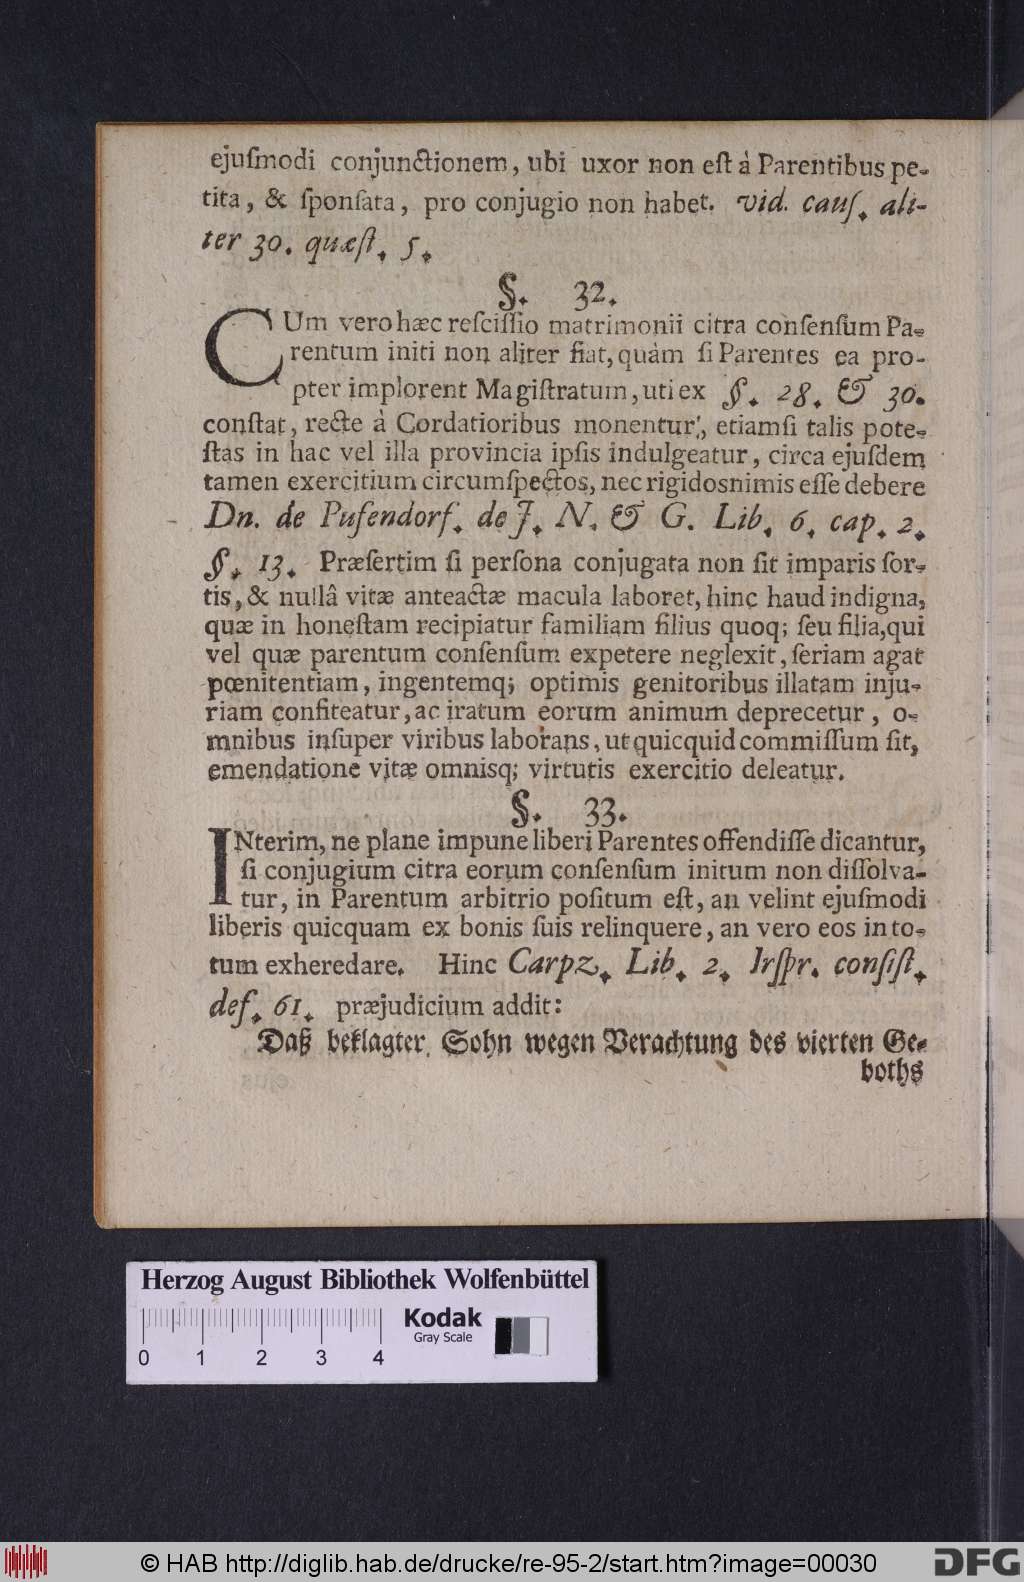 ejuſmodi conjunctionem, ubi uxor non eſt à Parentibus pe-
tita, & ſponſata, pro conjugio non habet. vid. cauſ. ali-
ter 30. quæſt. 5.
§. 32.
CUm vero hæc reſciſſio matrimonii citra conſenſum Pa-
rentum initi non aliter fiat, quàm ſi Parentes ea pro-
pter implorent Magiſtratum, uti ex §. 28. & 30.
conſtat, recte à Cordatioribus monentur, etiamſi talis pote-
ſtas in hac vel illa provincia ipſis indulgeatur, circa ejuſdem
tamen exercitium circumſpectos, nec rigidos nimis eſſe debere
Dn. de Pufendorf. de J. N. & G. Lib. 6. cap. 2.
§. 13. Præſertim ſi perſona conjugata non ſit imparis ſor-
tis, & nullâ vitæ anteactæ macula laboret, hinc haud indigna,
quæ in honeſtam recipiatur familiam filius quoq; ſeu filia, qui
vel quæ parentum conſenſum expetere neglexit, ſeriam agat
pœnitentiam, ingentemq; optimis genitoribus illatam inju-
riam confiteatur, ac iratum eorum animum deprecetur, o-
mnibus inſuper viribus laborans, ut quicquid commiſſum ſit,
emendatione vitæ omnisq; virtutis exercitio deleatur.
§. 33.
INterim, ne plane impune liberi Parentes offendiſſe dicantur,
ſi conjugium citra eorum conſenſum initum non diſſolva-
tur, in Parentum arbitrio poſitum eſt, an velint ejuſmodi
liberis quicquam ex bonis ſuis relinquere, an vero eos in to-
tum exheredare. Hinc Carpz. Lib. 2. Irſpr. conſiſt.
def. 61. præjudicium addit:
Daß beklagter Sohn wegen Verachtung des vierten Ge-
boths
Herzog August Bibliothek Wolfenbüttel
Kodak
Gray Scale
0 1 2 3 4
© HAB http://diglib.hab.de/drucke/re-95-2/start.htm?image=00030
DFG